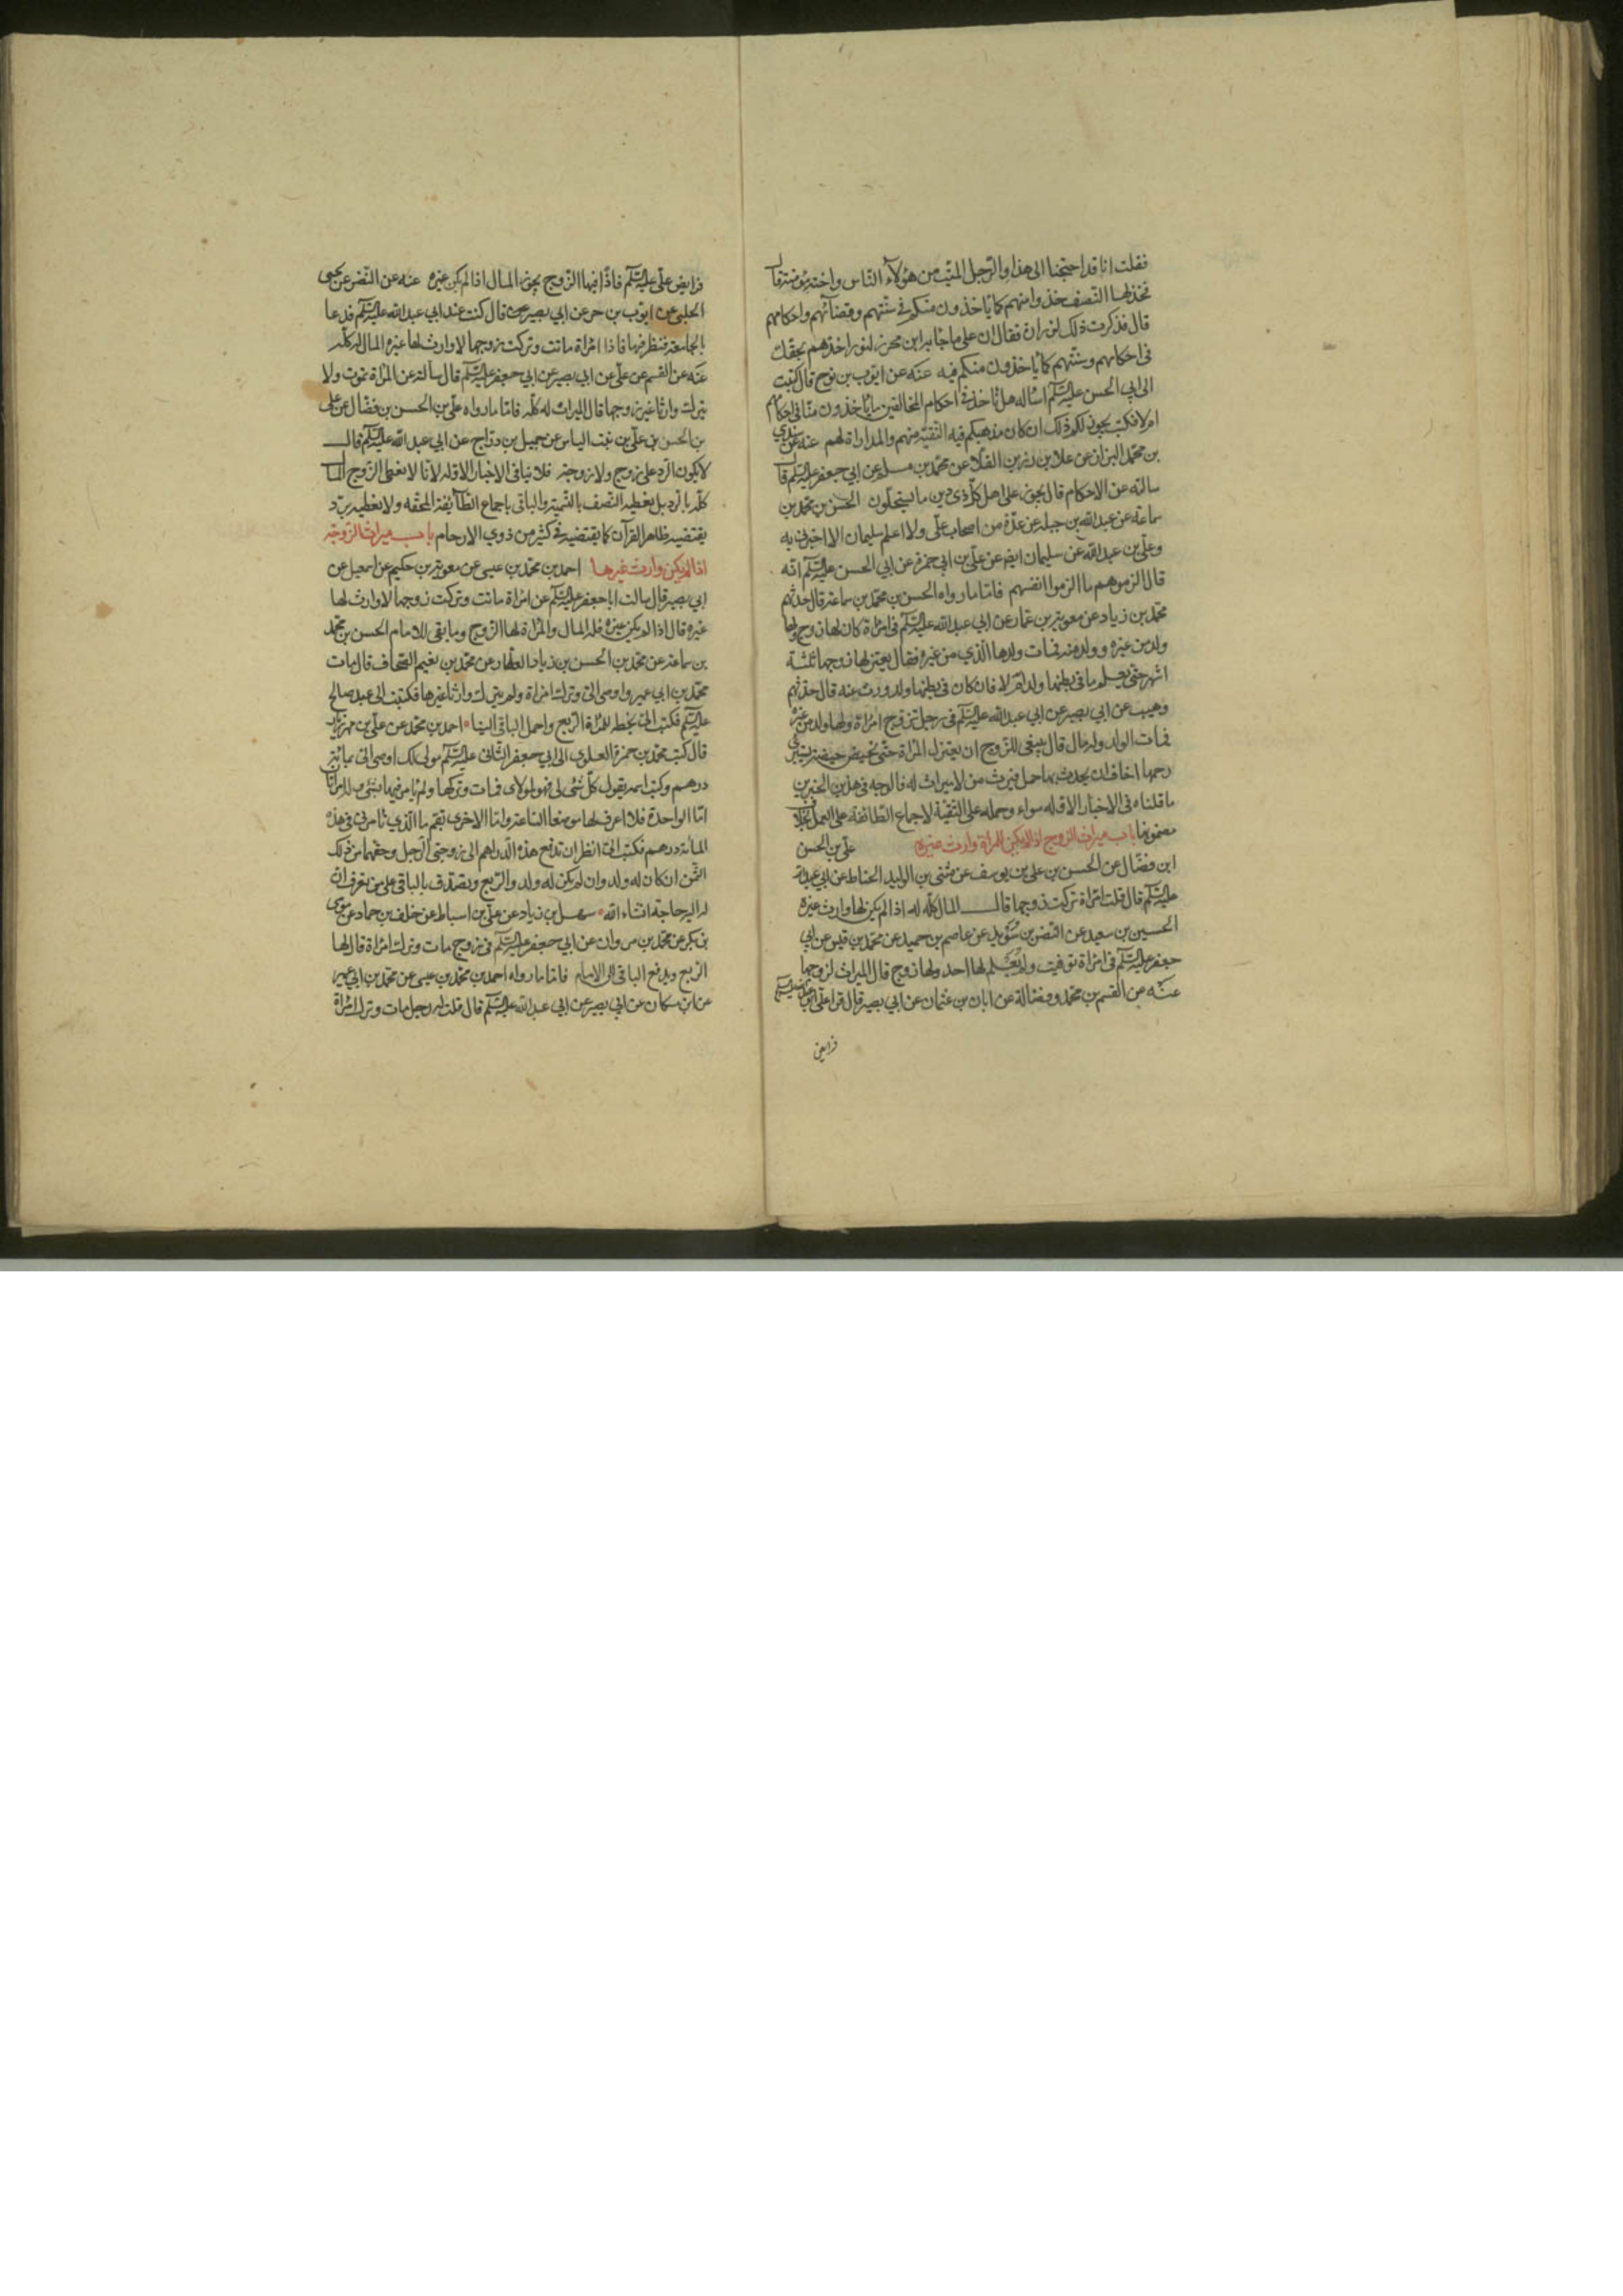 فقلت انا قد احتجنا الى هذا والرجل الميّت من هؤلاء الناس واخته مؤمنة قال
فخذ لها النصف خذوا منهم كما ياخذون منكم في سنتهم وقضائهم واحكامهم
قال فذكرت ذلك لزرارة فقال ان على ما جاء به ابن محرز لنورا خذهم بحقك
في احكامهم وسنتهم كما ياخذون منكم فيه عنه عن ايوب بن نوح قال كتبت
الى ابي الحسن عليه السلم اساله هل ناخذ في احكام المخالفين ما ياخذون منا في احكامهم
ام لا فكتب يجوز لكم ذلك ان كان مذهبكم فيه التقية منهم والمداراة لهم عنه عن سندي
بن محمد البزاز عن علا بن رزين القلا عن محمد بن مسلم عن ابي جعفر عليه السلم قال
سالته عن الاحكام قال يجوز على اهل كل ذي دين ما يستحلون الحسن بن محمد بن
سماعة عن عبد الله بن جبله عن عدة من اصحاب علي ولا اعلم سليمان الا اخبرني به
وعلي بن عبد الله عن سليمان ايضا عن علي بن ابي حمزة عن ابي الحسن عليه السلم انه
قال الزموهم ما الزموا انفسهم فاما ما رواه الحسن بن محمد بن سماعة قال حدثهم
محمد بن زياد عن معوية بن عمار عن ابي عبد الله عليه السلم في امراة كان لها زوج ولها
ولد من غيره وولد منه فمات ولدها الذي من غيره فقال يعتزلها زوجها ثلثة
اشهر حتى يعلم ما في بطنها ولد ام لا فان كان في بطنها ولد ورث عنه قال حدثهم
وهيب عن ابي بصير عن ابي عبد الله عليه السلم في رجل تزوج امراة ولها ولد من غيره
فمات الولد وله مال قال ينبغي للزوج ان يعتزل المراة حتى تحيض حيضة يستبرئ
رحمها اخاف ان يحدث بها حمل فيرث من لا ميراث له فالوجه في هذين الخبرين
ما قلناه في الاخبار الاوله سواء وحمله على التقية لاجماع الطائفة على العمل بخلاف
مضمونها باب ميراث الزوج اذا لم يكن للمراة وارث غيره علي بن الحسن
ابن فضال عن الحسن بن علي بن يوسف عن مثنى بن الوليد الحناط عن ابي عبد الله
عليه السلم قال قلت امراة تركت زوجها قال المال كله له اذا لم يكن لها وارث غيره
الحسين بن سعيد عن النضر بن سويد عن عاصم بن حميد عن محمد بن قيس عن ابي
جعفر عليه السلم في امراة توفيت ولم يعلم لها احد ولها زوج قال الميراث لزوجها
عنه عن القسم بن محمد وفضالة عن ابان بن عثمان عن ابي بصير قال قرا علي ابو عبد الله عليه السلم
فرايض
فرايض علي عليه السلم فاذا فيها الزوج يحوز المال اذا لم يكن غيره عنه عن النضر عن يحيى
الحلبي عن ايوب بن حر عن ابي بصير قال كنت عند ابي عبد الله عليه السلم فدعا
بالجامعة فنظر فيها فاذا امراة ماتت وتركت زوجها لا وارث لها غيره المال له كله
عنه عن القسم عن علي عن ابي بصير عن ابي جعفر عليه السلم قال سالته عن المراة تموت ولا
تترك وارثا غير زوجها قال الميراث له كله فاما ما رواه علي بن الحسن بن فضال عن علي
بن الحسن بن علي بن بنت الياس عن جميل بن دراج عن ابي عبد الله عليه السلم قال
لا يكون الرد على زوج ولا زوجة فلا ينافي الاخبار الاوله لانا لا نعطي الزوج المال
كله بالرد بل نعطيه النصف بالتسمية والباقي باجماع الطائفة المحقه ولا نعطيه برد
يقتضيه ظاهر القرآن كما يقتضيه في كثير من ذوي الارحام باب ميراث الزوجة
اذا لم يكن وارث غيرها احمد بن محمد بن عيسى عن معوية بن حكيم عن اسمعيل عن
ابي بصير قال سالت ابا جعفر عليه السلم عن امراة ماتت وتركت زوجها لا وارث لها
غيره قال اذا لم يكن غيره فله المال والمراة لها الربع وما بقي للامام الحسن بن محمد
بن سماعة عن محمد بن الحسن بن زياد العطار عن محمد بن نعيم الصحاف قال مات
محمد بن ابي عمير واوصى الي وترك امراة ولم يترك وارثا غيرها فكتبت الى عبد صالح
عليه السلم فكتب الي بخطه للمراة الربع واحمل الباقي الينا احمد بن محمد عن علي بن مهزيار
قال كتب محمد بن حمزة العلوي الى ابي جعفر الثاني عليه السلم مولى لك اوصى الي بمائة
درهم وكنت اسمعه يقول كل شئ لي فهو لمولاي فمات وتركها ولم يامر فيها بشئ وله امراتان
اما الواحدة فلا اعرف لها موضعا الساعة واما الاخرى بقم ما الذي تامرني في هذه
المائة درهم فكتب الي انظر ان تدفع هذه الدراهم الى زوجتي الرجل وحقهما من ذلك
الثمن ان كان له ولد وان لم يكن له ولد والربع وتصدق بالباقي على من تعرف ان
له اليه حاجة انشاء الله سهل بن زياد عن علي بن اسباط عن خلف بن حماد عن موسى
بن بكر عن محمد بن مروان عن ابي جعفر عليه السلم في زوج مات وترك امراة قال لها
الربع ويدفع الباقي الى الامام فاما ما رواه احمد بن محمد بن عيسى عن محمد بن ابي عمير
عن ابن مسكان عن ابي بصير عن ابي عبد الله عليه السلم قال قلت له رجل مات وترك امراة